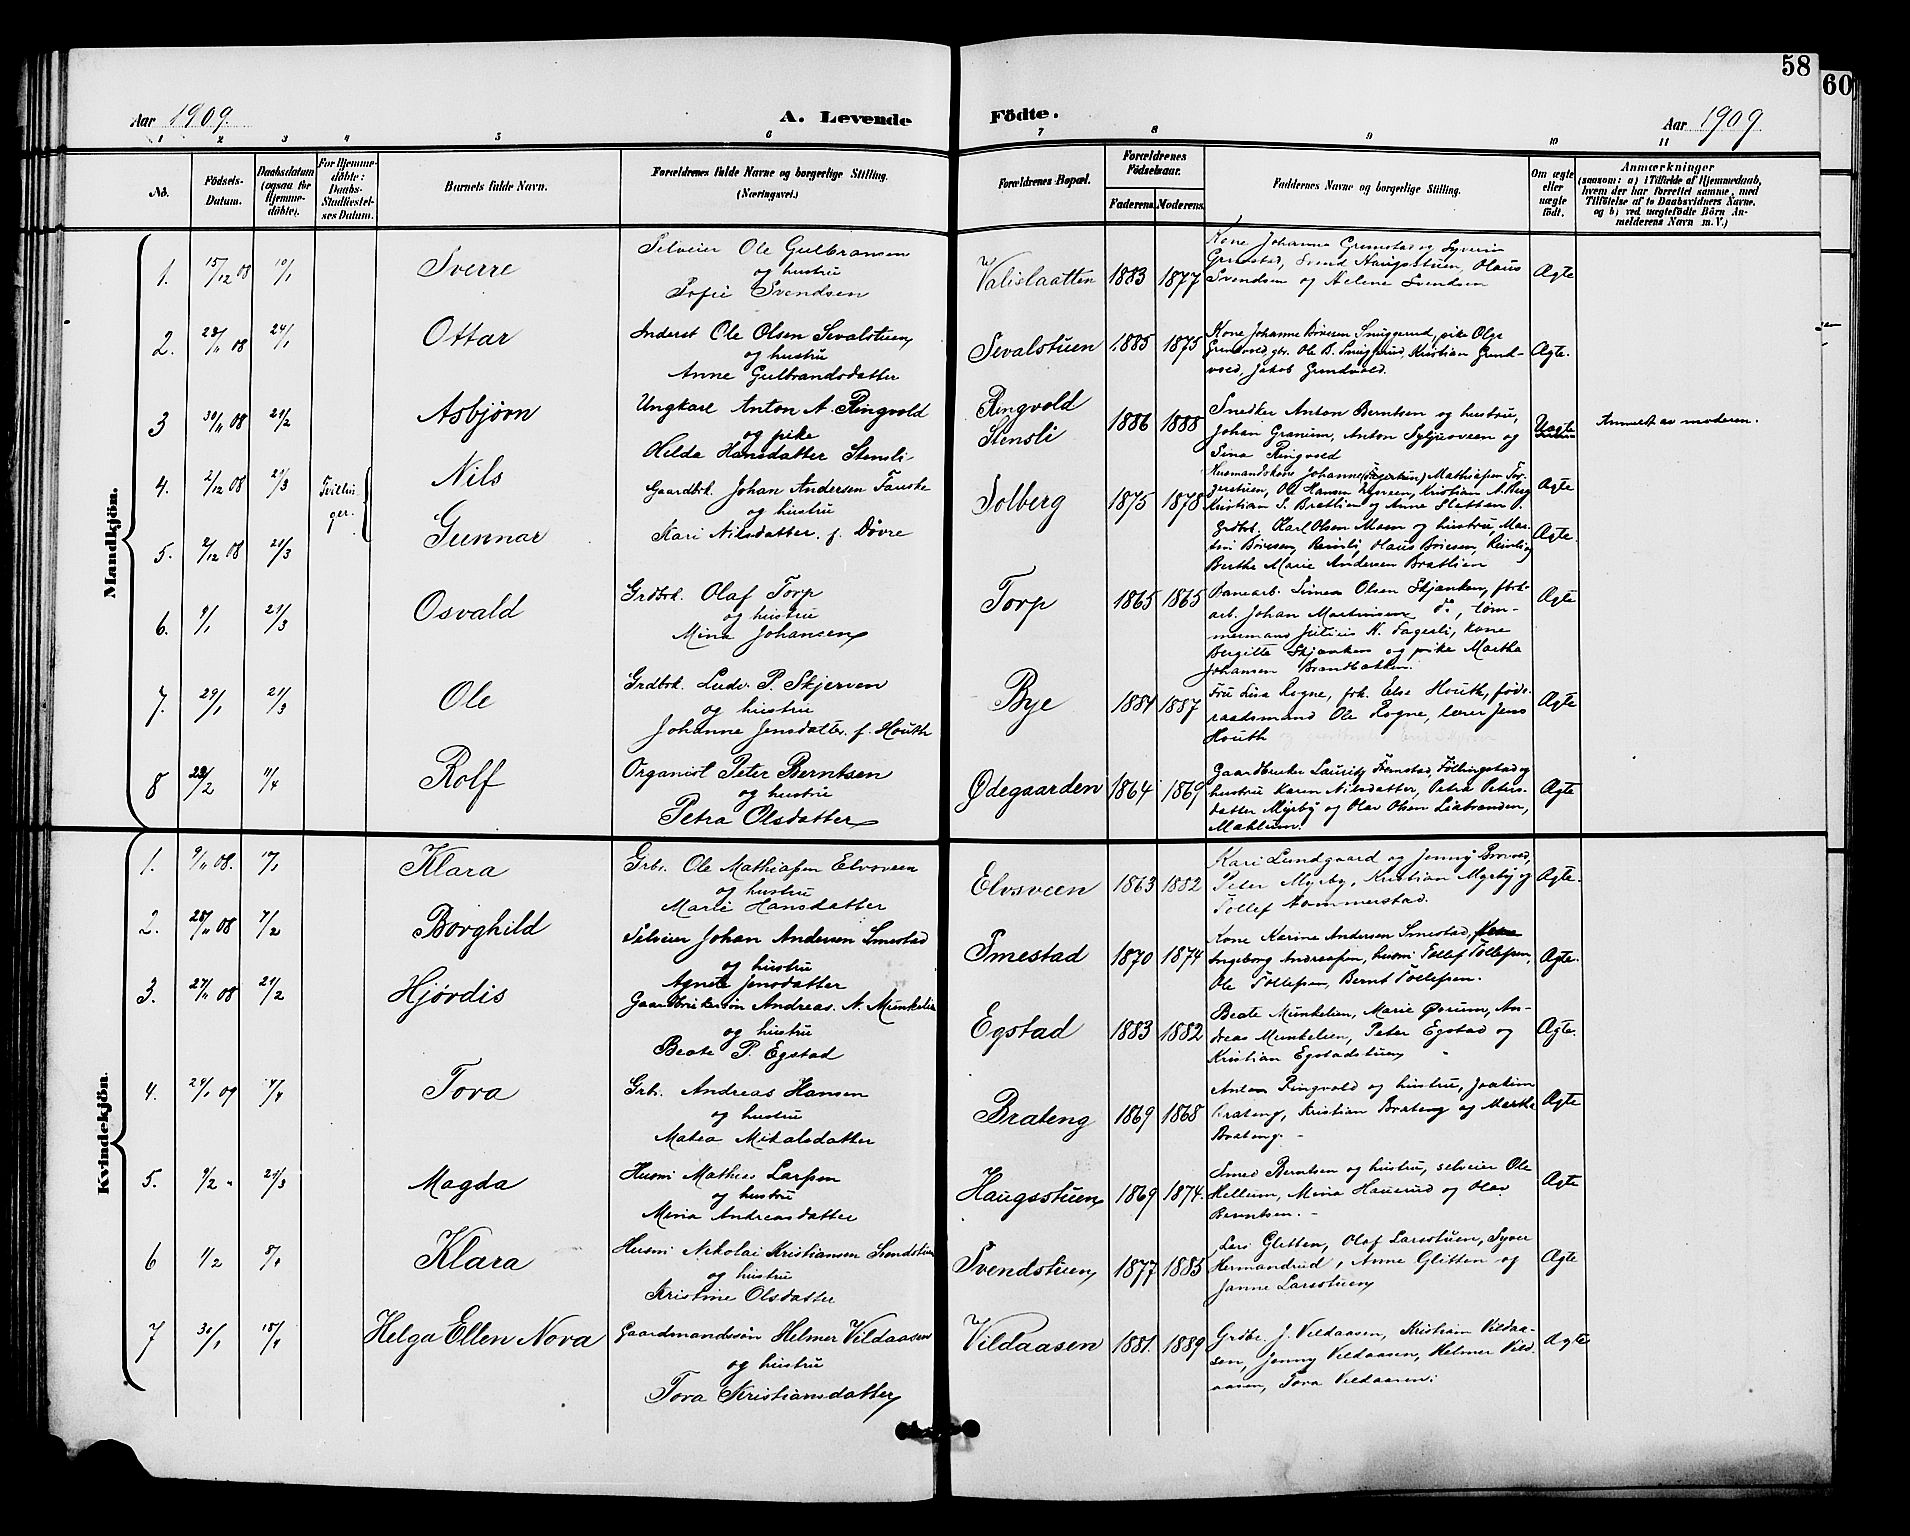 58
60
Aar 1909.
A. Levende
Födte.
Aar 1909
1 2 3 4 5 6 7 8 9 10 11
No.
Födsels-
Datum.
Daabsdatum
(ogsaa for
Hjemme-
döbte).
For Hjemme-
döbte:
Daabs-
Stadfæstel-
ses Datum.
Barnets fulde Navn.
Forældrenes fulde Navne og borgerlige Stilling.
(Næringsvei.)
Forældrenes Bopæl.
Forældrenes
Födselsaar.
Faderens. Moderens.
Faddernes Navne og borgerlige Stilling.
Om ægte
eller
uægte
födt.
Anmærkninger
(saasom: a) i Tilfælde af Hjemmedaab,
hvem der har forrettet samme, med
Tilföielse af to Daabsvidners Navne.
og b) ved uægtefödte Börn An-
melderens Navn m. V.)
Mandkjön.
1. 15/12 08 10/1 Sverre
Selveier Ole Gulbransen
og hustru
Sofie Svendsen
Valislaatten 1883 1877
Kone Johanna Grimstad og Syverin
Grimstad, Svend Haugsstuen, Olaus
Svendsen og Helene Svendsen
Ægte
2. 28/11 08 24/1 Ottar
Inderst Ole Olsen Sevalstuen,
og hustru
Anne Gulbrandsdatter
Sevalstuen 1885 1875
Kone Johanne Børesen Snuggerud, pike Olga
Grundvold, gbr. Ole B. Snuggerud, Kristian Grund-
vold, Jakob Grundvold.
Ægte.
3 30/11 08 21/2 Asbjørn
Ungkarl Anton A. Ringvold
og pike
Hilda Hansdatter Stensli
Ringvold
Stensli 1886 1888
Snedker Anton Berntsen og hustru,
Johan Granum, Anton Syljusveen og
Sina Ringvold
Uægte
Anmeldt av moderen.
4. 2/12 08 21/3 Tvillin
ger. Nils
Gaardbr. Johan Andersen Fauske
og hustru
Kari Nilsdatter f. Dovre
Solberg 1875 1878
Husmandskone Johanne Mathiasen
Ole Hansen Lysveen, Kristian A. Berg
Kristian S. Bratlien og Anne Sletten
Ægte
5. 2/12 08 21/3 Gunnar
Grdbr. Karl Olsen Moen og hustru, Mar-
tin Børesen, Reinli, Olaus Børesen, Reinli og
Berthe Marie Andersen Bratlien
Ægte.
6. 9/1 21/3 Osvald
Grdbrk. Olaf Torp
og hustru
Mina Johansen
Torp 1865 1865
Banearb. Simen Olsen Skjanken, fbr.
arb. Johan Martinsen do., töm-
mermand Julius N. Fagerli, kone
Bergitte Skjanken og pike Martha
Johansen Brandbakken.
Ægte
7. 29/1 21/3 Ole
Grdbrk. Ludv. P. Skjerven
og hustru
Johanne Jensdatter f. Houth
Bye 1884 1887
Fru Lina Rogne, frk. Else Houth, föd-
raadsmand Ole Rogne, lærer Jens
Houth
Ægte
8 23/2 11/4 Rolf
Organist Peter Berntsen
og hustru
Petra Olsdatter
Ødegaarden 1864 1869
Gaardbruker Lauritz Fremstad, Föllingstad og
hustru Karen Nilsdatter, Petra Peters-
datter Myrby og Olav Olsen Liabranden,
Mæhlum.
Ægte
Kvindekjön.
1. 9/11 08. 17/1 Klara
Grbr. Ole Mathiasen Elvsveen
og hustru
Marie Hansdatter
Elvsveen 1863 1882
Kari Lundgaard og Jenny
Peter Myrby, Kristian Myrby og
Tollef Hommerstad.
Ægte.
2. 28/11 08 7/2 Borghild
Selveier Johan Andersen Smestad
og hustru
Agnete Jensdatter
Smestad 1870 1874
Kone Karine Andersen Smestad,
Ingeborg Andreassen, husm. Tollef Tollefsen,
Ole Tollefsen, Bernt Tollefsen.
Ægte.
3. 27/11 08 21/2 Hjørdis
Gaardbrukersøn Andreas N. Munkelien
og hustru
Beate P. Egstad
Egstad 1883 1882
Beate Munkelien, Marie Ørum, An-
dreas Munkelien, Peter Egstad og
Kristian Egstadstuen
Ægte.
4. 24/1 09 4/4 Tora
Grbr. Andreas Hansen
og hustru
Matea Mikalsdatter
Brateng 1869 1868
Anton Ringvold og hustru, Joakim
Brateng, Kristian Brateng og Martha
Brateng. -
Ægte
5. 9/2 " 21/3 Magda
Husm. Mathias Larsen
og hustru
Mina Andreasdatter
Haugsstuen 1869 1874.
Smed Berntsen og hustru, selveier Ole
Hellum, Mina Hauerud og Olav
Berntsen. -
Ægte
6 1/2 8/4 Klara
Husm. Nikolai Kristiansen Svendstuen
og hustru
Kristine Olsdatter
Svendstuen 1877 1885
Lars Glitten, Olaf Larsstuen, Syver
Hermandrud, Anne Glitten og
Janne Larsstuen
Ægte
7 30/1 18/4 Helga Ellen Nova
Gaardmandssøn Helmer Vildaasen
og hustru
Tora Kristiansdatter
Vildaasen 1881. 1889
Grdbr. J. Vildaasen, Kristian Vildaa-
sen, Jenny Vildaasen, Helmer Vild-
aasen, Tora Vildaasen.
Ægte